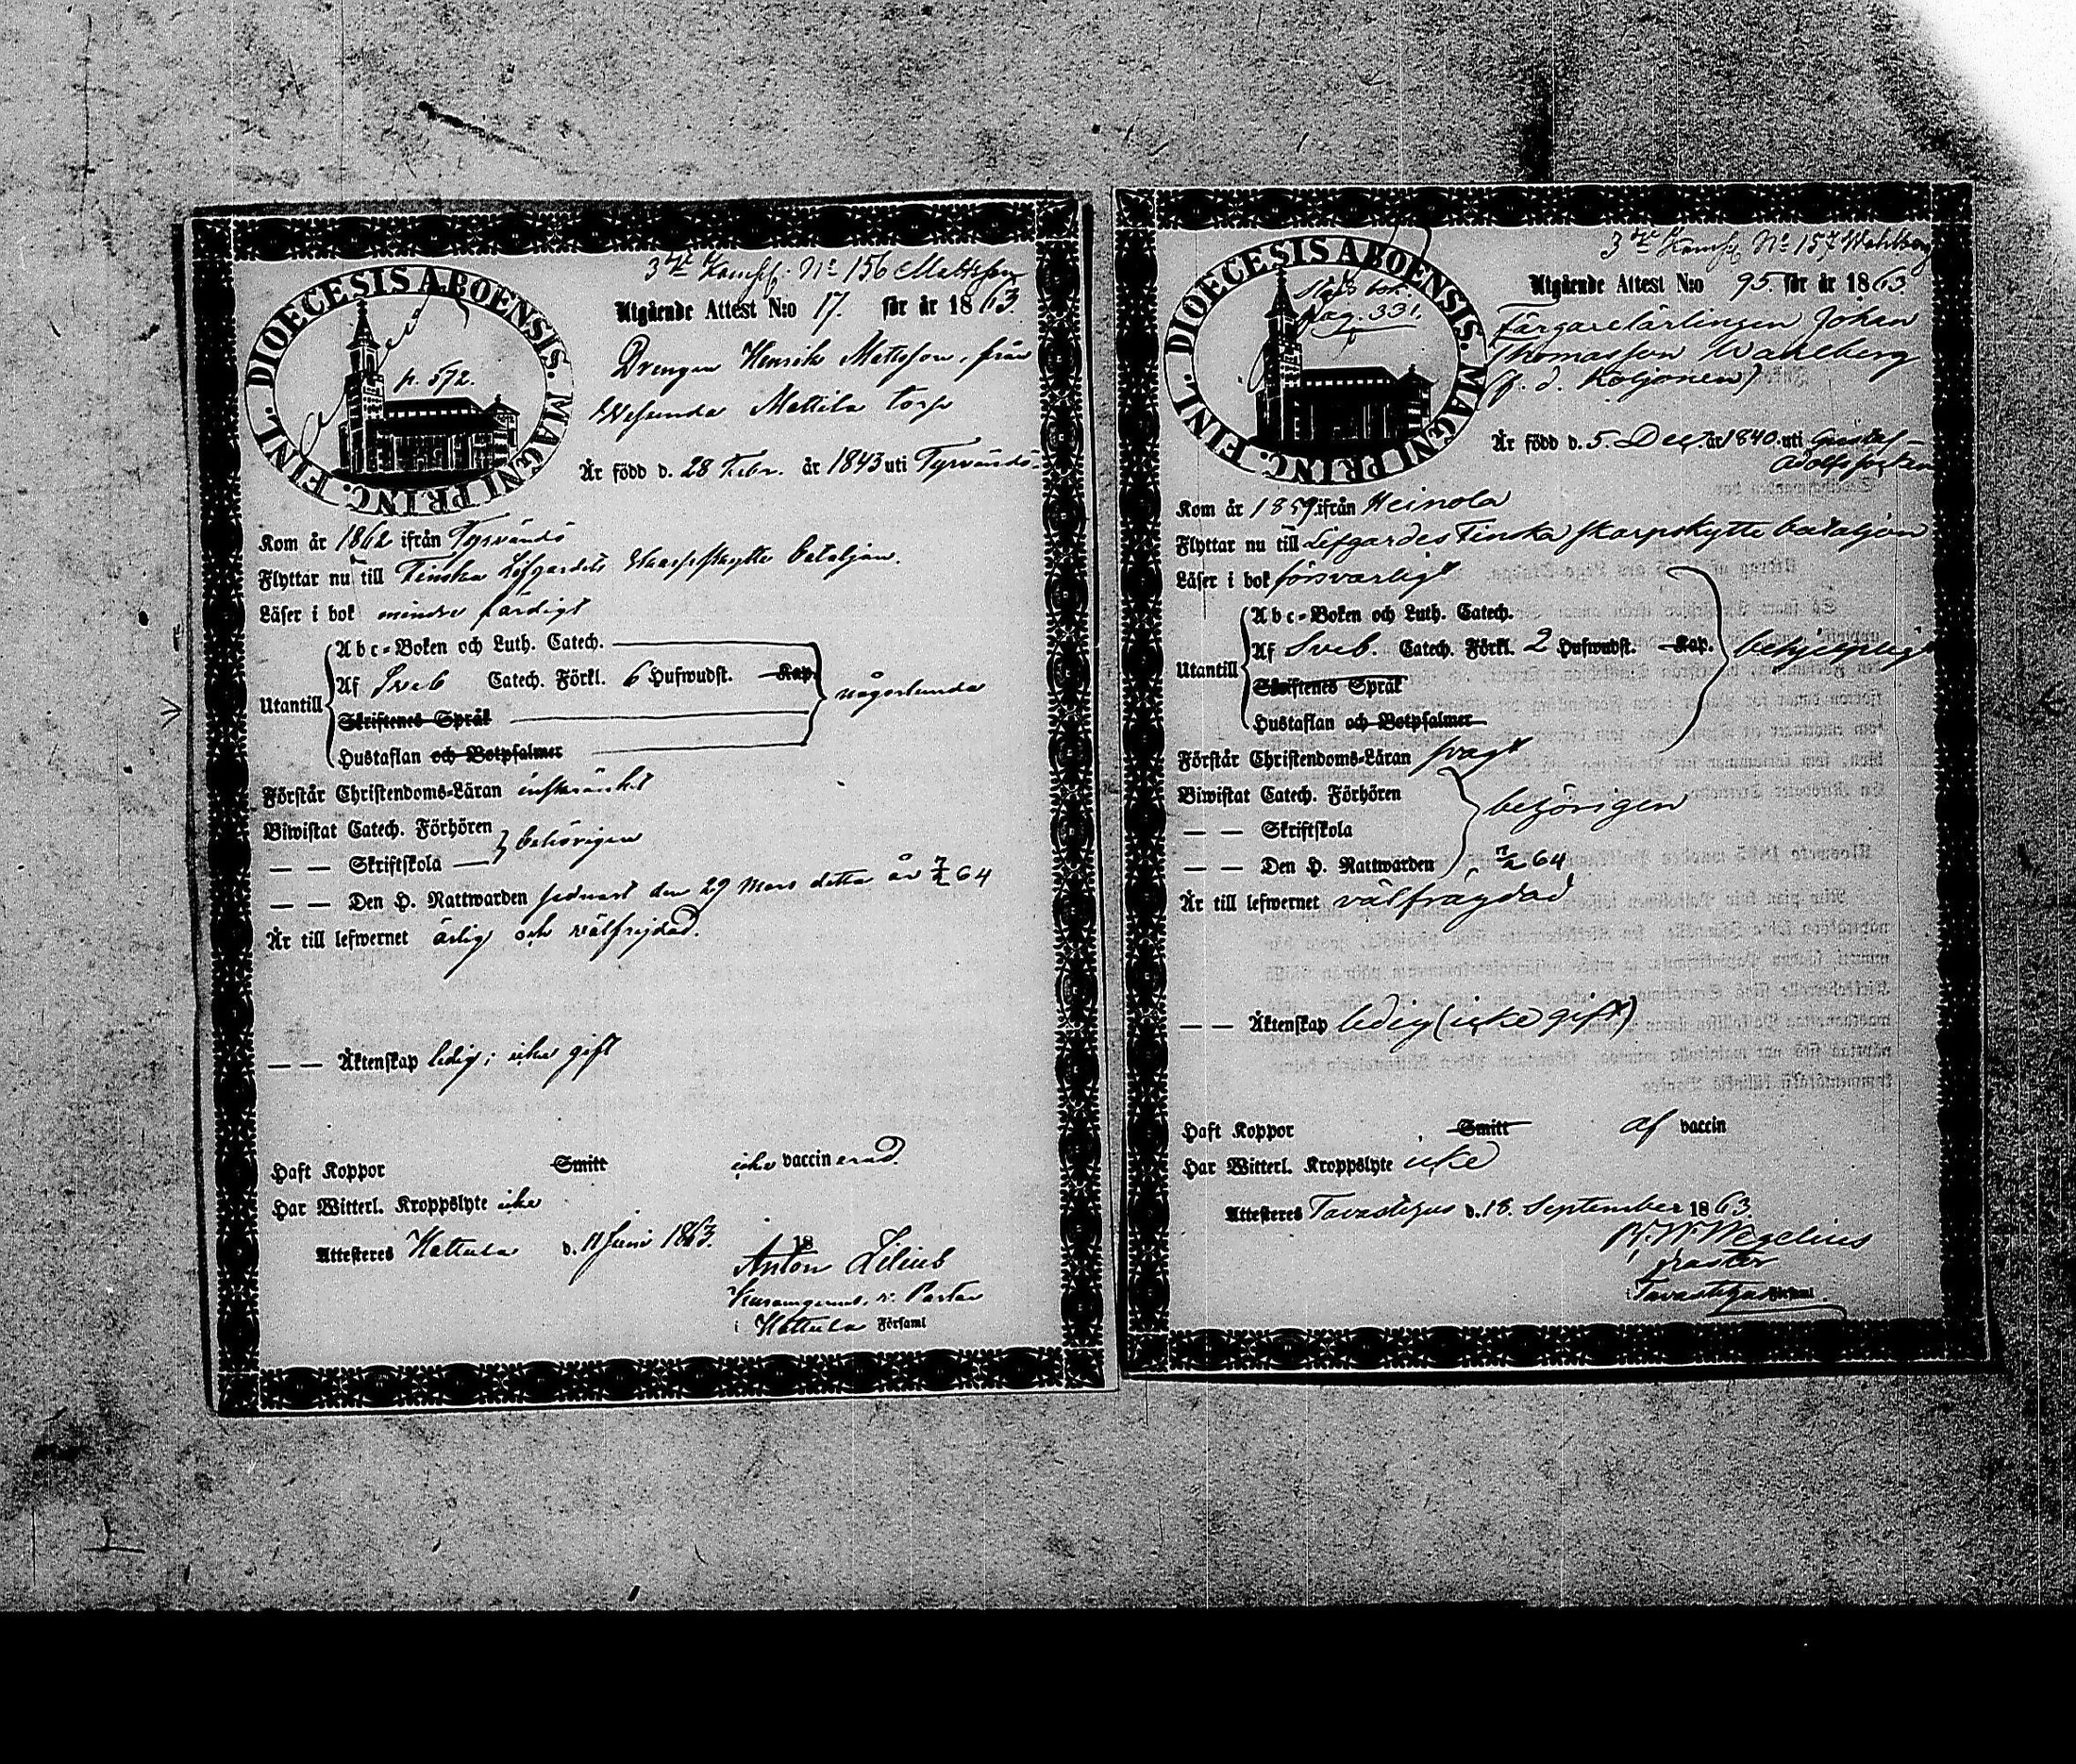 3dje Komp. No 156 Mattsson
DIOECESIS ABOENSIS. MAGNI PRINC. FINL.
p. 572.
Utgående Attest N:o 17. för år 1863.
Drengen Henrik Mattsson, från
Mattila torp
Är född d. 28 Febr. år 1843 uti Tyrvändö.
Kom år 1862 ifrån Tyrvändö
Flyttar nu till Finska Lifgardets Skarpskytte bataljon.
Läser i bok mindre färdigt
Abc-Boken och Luth. Catech.
Utantill Af Sveb Catech. Förkl. 6 Hufwudst. Kap. någorlunda
Skriftenes Språk
Hustaflan och Botpsalmer
Förstår Christendoms-Läran inskränkt
Biwistat Catech. Förhören
— — Skriftskola behörigen
— — Den H. Nattwarden sednast den 29 Mars detta år 7/2 64
Är till lefwernet ärlig och välfrejdad.
— — Äktenskap ledig; icke gift
Haft Koppor Smitt icke vaccinerad.
Har Witterl. Kroppslyte icke
Attesteres Hattula d. 11 Juni 1863. 18
Anton Lilius
v. Pastor
i Hattula Församl
3dje Komp. No 157 Wahlberg
DIOECESIS ABOENSIS. MAGNI PRINC. FINL.
pag. 331.
Utgående Attest N:o 95. för år 1863
Färgarelärlingen Johan
Thomasson Wahlberg
(f. d. Koljonen)
Är född d. 5. Dec. år 1840. uti Gustaf-
Adolfs socken
Kom år 1859. ifrån Heinola
Flyttar nu till Lifgardes Finska skarpskytte bataljon
Läser i bok försvarligt
Abc-Boken och Luth. Catech.
Utantill Af Sveb. Catech. Förkl. 2 Hufwudst. Kap. behjelpligt
Skriftenes Språk
Hustaflan och Botpsalmer
Förstår Christendoms-Läran svagt
Biwistat Catech. Förhören
— — Skriftskola behörigen
— — Den H. Nattwarden 7/2 64
Är till lefwernet välfrägdad
— — Äktenskap ledig (icke gift)
Haft Koppor Smitt af vaccin
Har Witterl. Kroppslyte icke
Attesteres Tavastehus d. 18. September 1863.
Wegelius
Pastor
i Tavastehus Församl.